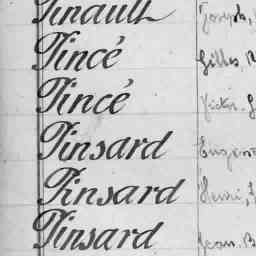 Tinault Joseph,
Tincé Gilles, R
Tincé Victor
Tinsard Eugène
Tinsard Henri,
Tinsard Jean, B